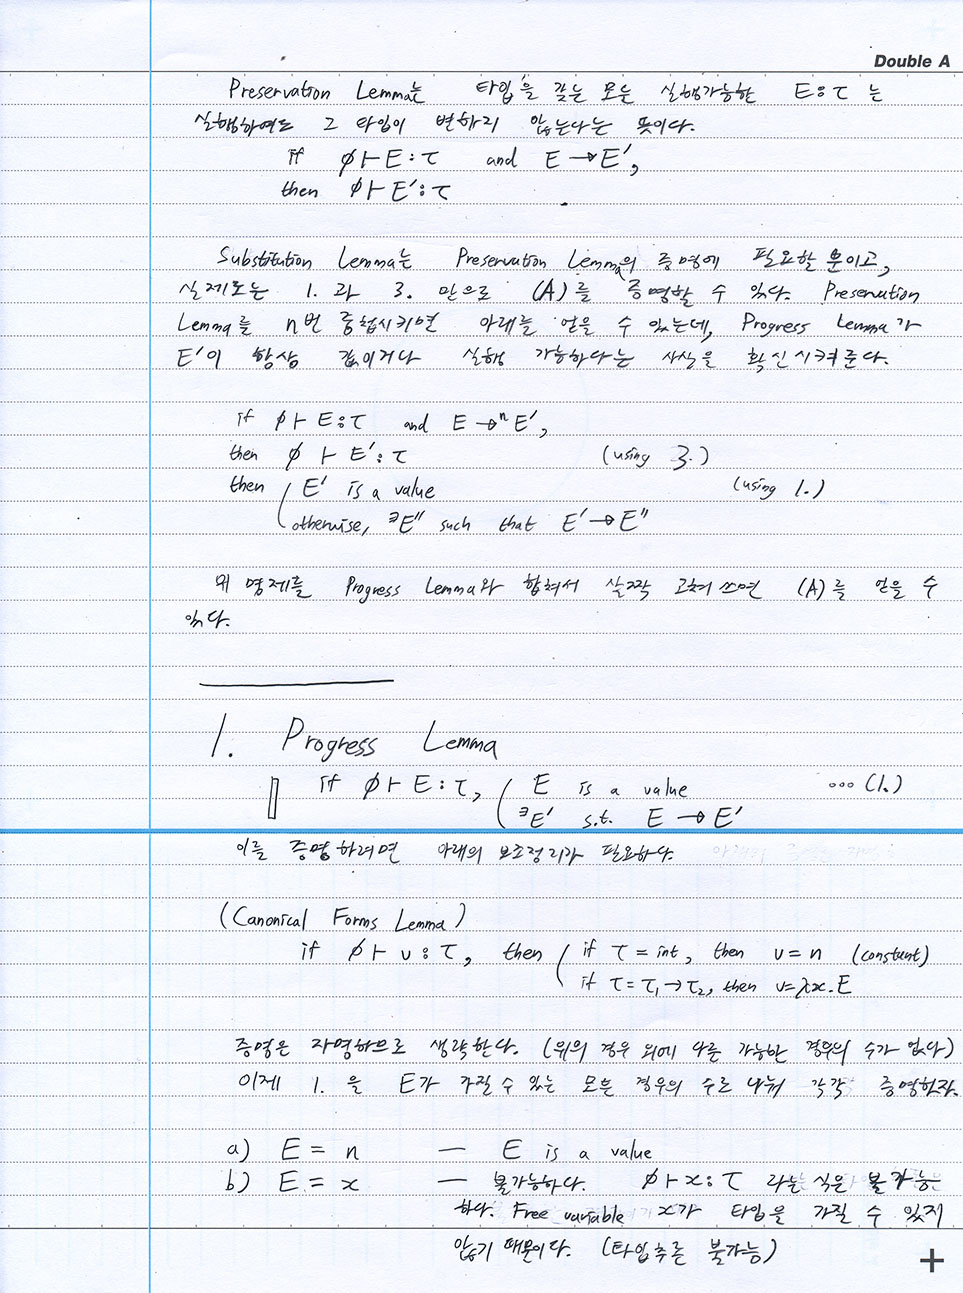 Double A
Preservation Lemma는 타입을 갖는 모든 실행가능한 E:τ 는
실행하여도 그 타입이 변하지 않는다는 뜻이다.
if ∅ ⊢ E : τ and E → E',
then ∅ ⊢ E' : τ
Substitution Lemma는 Preservation Lemma의 증명에 필요할 뿐이고,
실제로는 1. 과 3. 만으로 (A)를 증명할 수 있다. Preservation
Lemma를 n번 중첩시키면 아래를 얻을 수 있는데, Progress Lemma가
E'이 항상 값이거나 실행 가능하다는 사실을 확신시켜준다.
if ∅ ⊢ E : τ and E →ⁿ E',
then ∅ ⊢ E' : τ (using 3.)
then ( E' is a value (using 1.)
otherwise, ∃E'' such that E' → E''
위 명제를 Progress Lemma와 합쳐서 살짝 고쳐 쓰면 (A)를 얻을 수
있다.
1. Progress Lemma
if ∅ ⊢ E : τ, ( E is a value ... (1.)
∃E' s.t. E → E'
이를 증명하려면 아래의 보조정리가 필요하다.
(Canonical Forms Lemma)
if ∅ ⊢ v : τ, then ( if τ = int, then v = n (constant)
if τ = τ₁ → τ₂, then v = λx.E
증명은 자명하므로 생략한다. (위의 경우 외에 다른 가능한 경우의 수가 없다)
이제 1. 을 E가 가질 수 있는 모든 경우의 수로 나눠 각각 증명한다.
a) E = n — E is a value
b) E = x — 불가능하다. ∅ ⊢ x : τ 라는 식은 불가능
하다. Free variable x가 타입을 가질 수 있지
않기 때문이다. (타입추론 불가능)